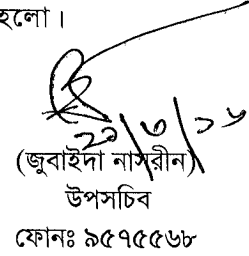 হলো।
২০/৩/১৬
(জুবাইদা নাসরীন)
উপসচিব
ফোনঃ ৯৫৭৫৫৬৮